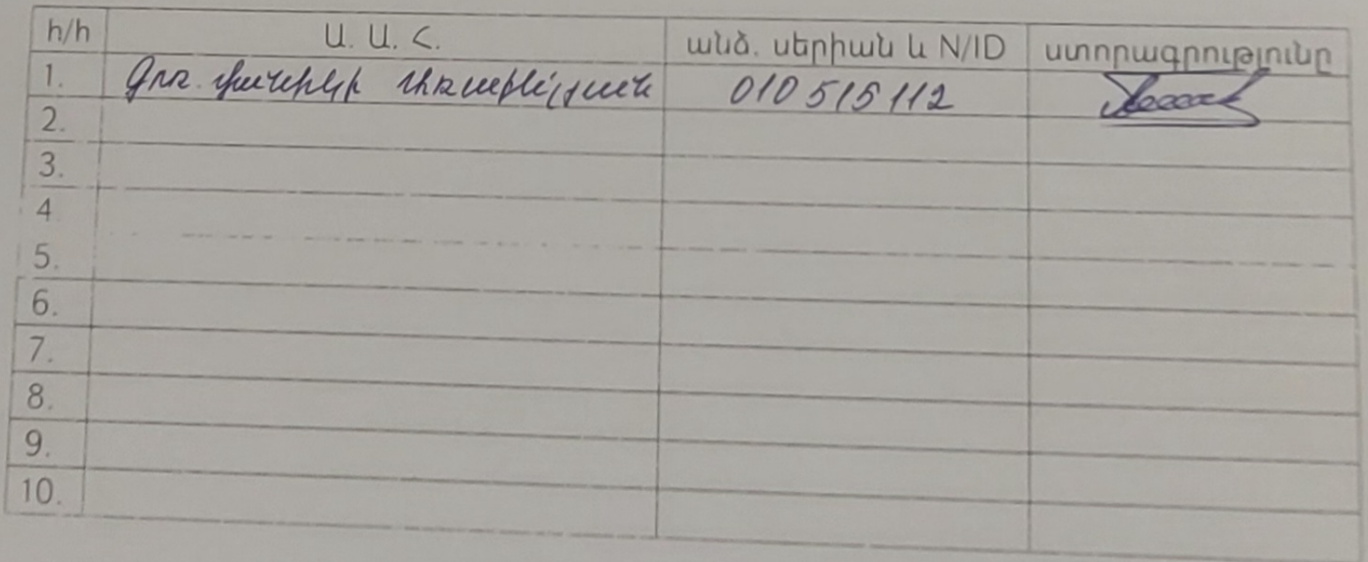 հ/հ Ա. Ա. Հ. անձ. սերիան և N/ID ստորագրությունը
1. Գոռ 010515112
2.
3.
4
5.
6.
7.
8.
9.
10.